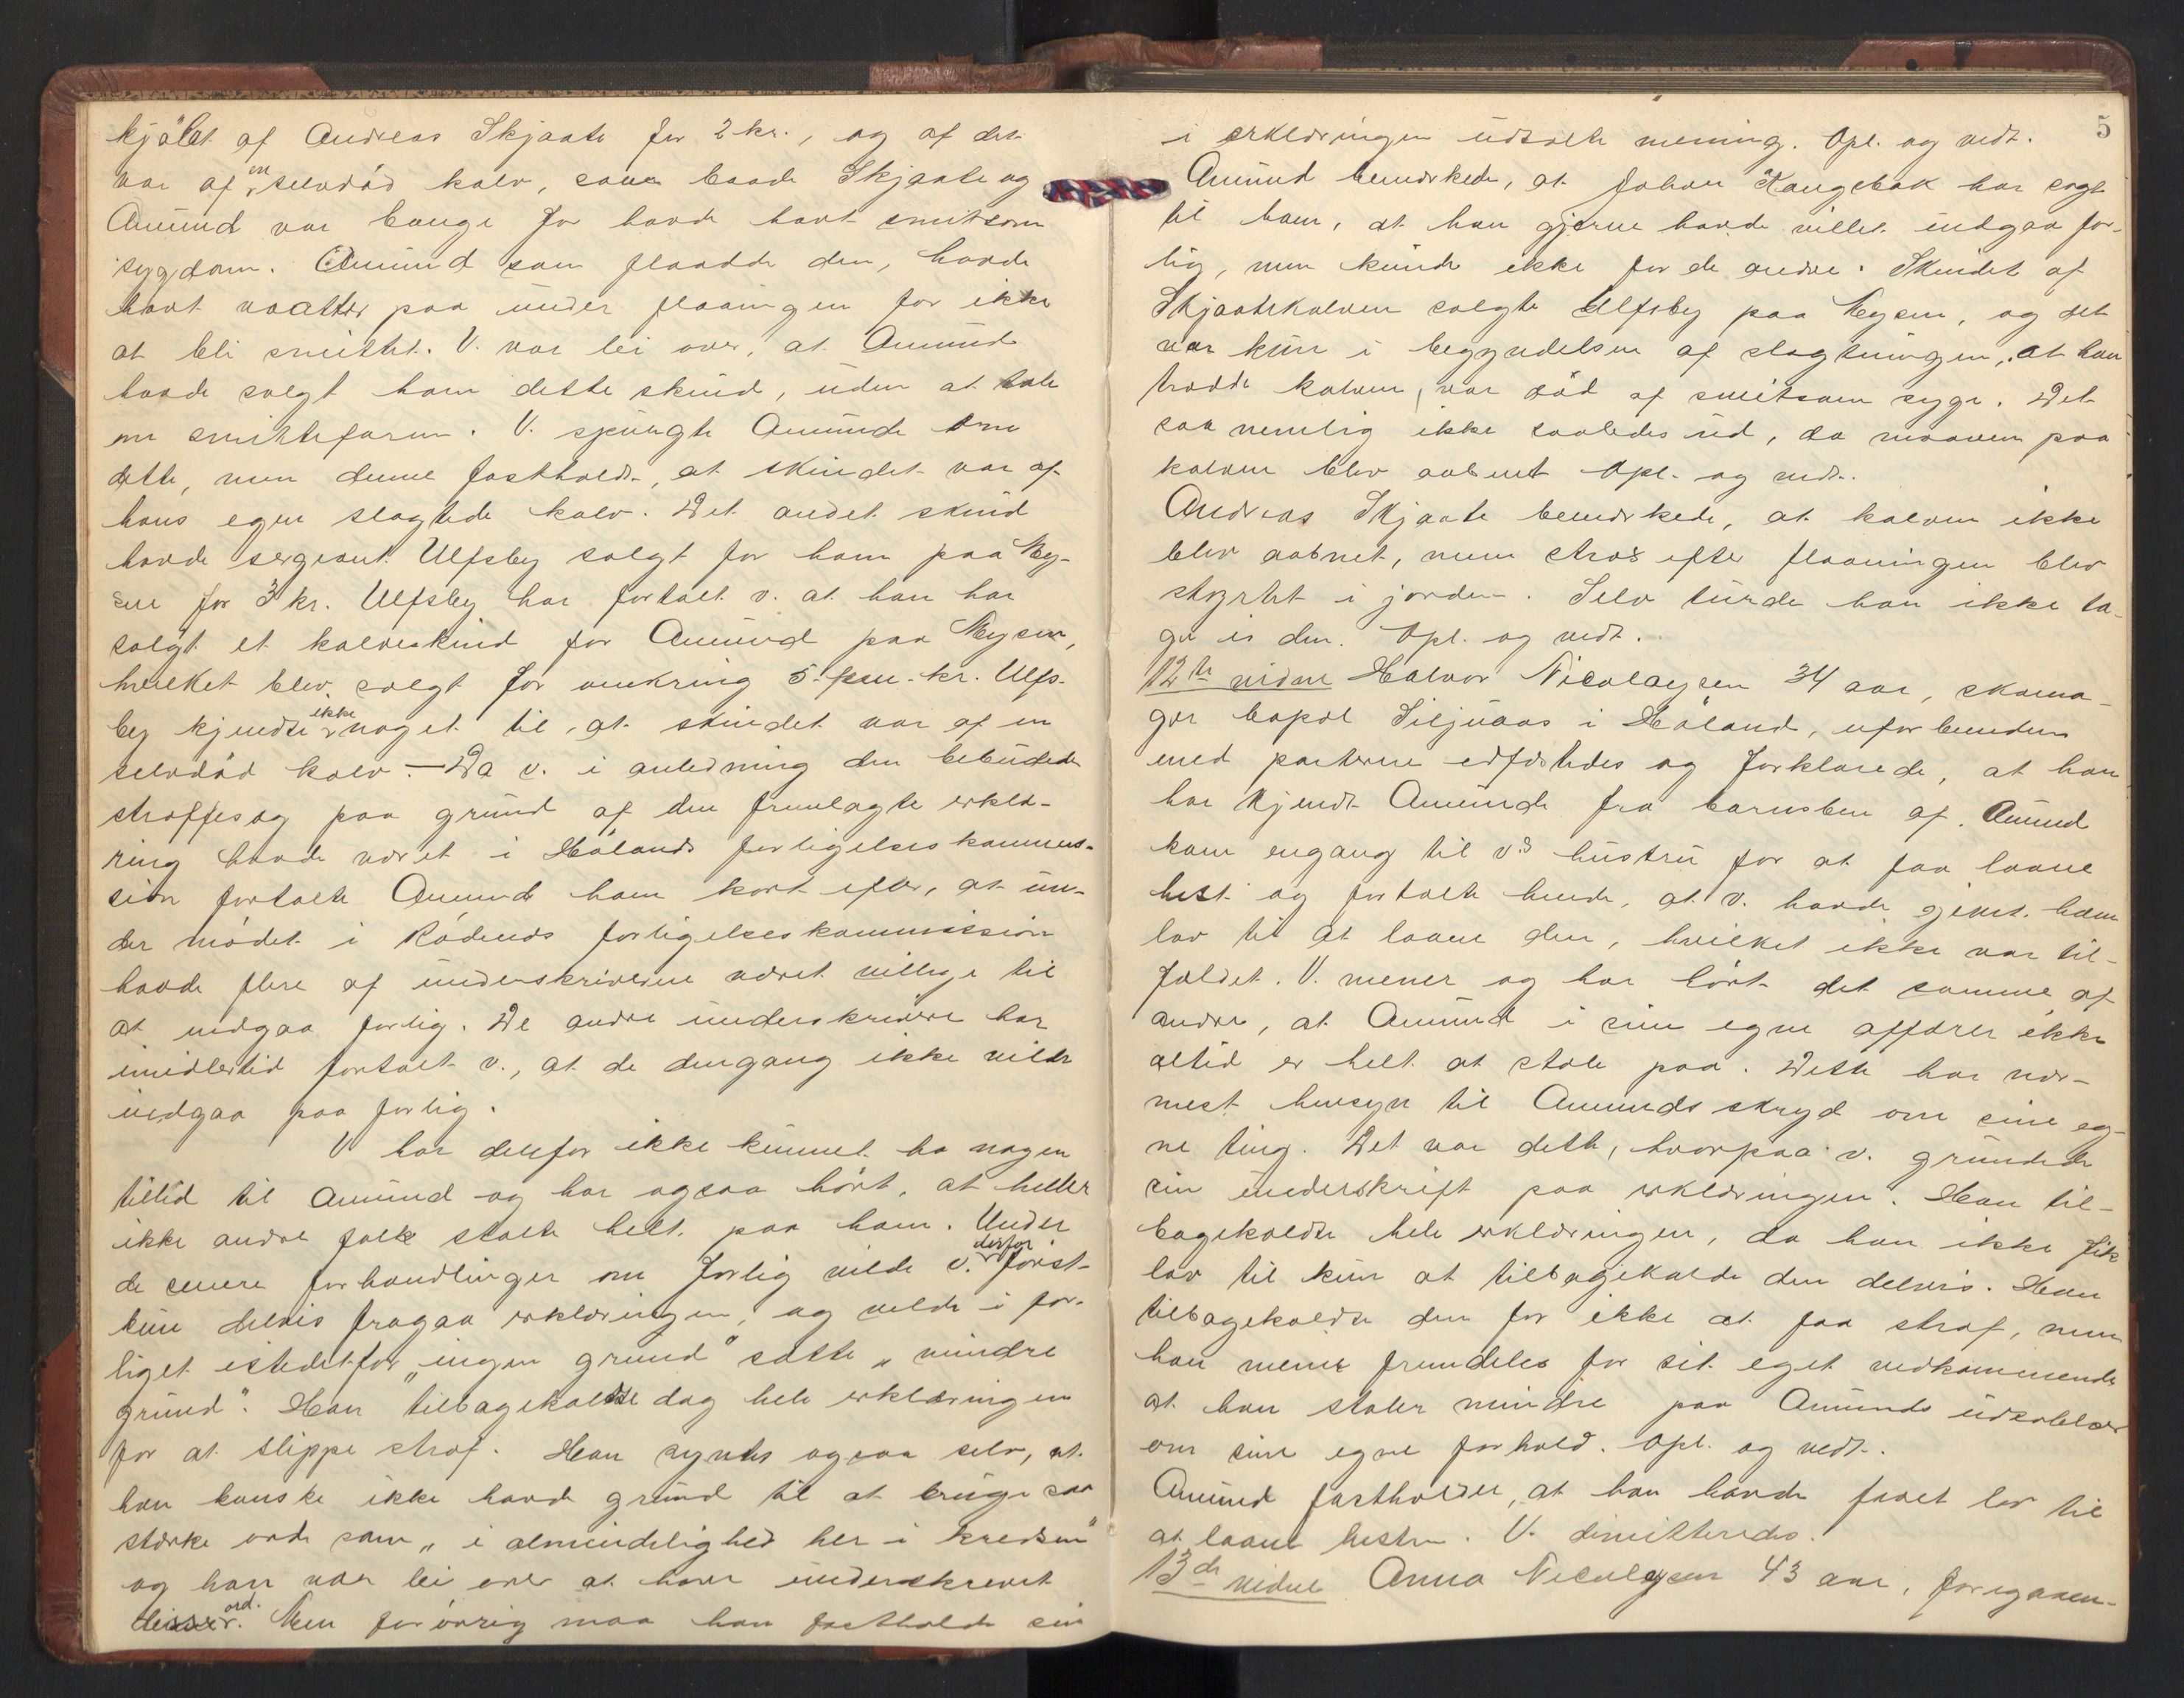 kjøbt af Andreas Skjaate for 2 kr., og af det
var af en selvdød kalv, som baade Skjaate og
Amund var bange for havde havt smitsom
sygdom. Amund som flaadde den, havde
havt vaatter paa under flaaingen for ikke
at bli smittet. V. var lei over, at Amund
havde solgt ham dette skind, uden at tale
om smittefaren. V. spurgte Amund om
dette, men denne fastholdt, at skindet var af
hans egen slagtede kalv. Det andet skind
havde sergeant Ulfsby solgt for ham paa My-
sen for 3 kr. Ulfsby har fortalt v. at han har
solgt et kalveskind for Amund paa Mysen,
hvilket blev solgt for omkring 5-fem-kr. Ulfs-
by kjendte ikke noget til, at skindet var af en
selvdød kalv. — Da v. i anledning den bebudede
straffesag paa grund af den fremlagte erklæ-
ring havde været i Hølands forligelseskommis-
sion fortalte Amund ham kort efter, at un-
der mødet i Rødenes forligelseskommission
havde flere af underskriverne været villige til
at indgaa forlig. De andre underskrivere har
imidlertid fortalt v., at de dengang ikke vilde
indgaa paa forlig.
V. har derfor ikke kunnet ha nogen
tillid til Amund og har ogsaa hørt, at heller
ikke andre folk stoler helt paa ham. Under
de senere forhandlinger om forlig vilde v. derfor først
kun delvis fragaa erklæringen, og vilde i for-
liget istedetfor „ingen grund" sætte „mindre
grund". Han tilbagekaldte dog hele erklæringen
for at slippe straf. Han syntes ogsaa selv, at
han kanske ikke havde grund til at bruge saa
stærke ord som „i almindelighed her i kredsen"
og han var lei over at have underskrevet
disse ord. Men forøvrig maa han fastholde sin
5
i erklæringen udtalte mening. Opl. og vedt.
Amund bemærkede, at Johan Kangsbak har sagt
til ham, at han gjerne havde villet indgaa for-
lig, men kunde ikke for de andre. Skindet af
Skjaatekalven solgte Ulfsby paa Mysen, og det
var kun i begyndelsen af slagtningen, at han
trodde kalven var død af smitsom syge. Det
saa nemlig ikke saaledes ud, da maaven paa
kalven blev aabnet. Opl. og vedt.
Andreas Skjaate bemærkede, at kalven ikke
blev aabnet, men strax efter flaaningen blev
styrtet i jorden. Selv turde han ikke ta-
ge i den. Opl. og vedt.
12te vidne Halvor Nicolaysen 34 aar, skoma-
ger bopæl Siljuaas i Høland, uforbunden
med parterne edfæstedes og forklarede, at han
har kjendt Amund fra barnsben af. Amund
kom engang til v.s hustru for at faa laane
hest og fortalte hende, at v. havde givet ham
lov til at laane den, hvilket ikke var til-
fældet. V. mener og har hørt det samme af
andre, at Amund i sine egne affærer ikke
altid er helt at stole paa. Dette har nær-
mest hensyn til Amunds skryd om sine eg-
ne ting. Det var dette, hvorpaa v. grundede
sin underskrift paa erklæringen. Han til-
bagekaldte hele erklæringen, da han ikke fik
lov til kun at tilbagekalde den delvis. Han
tilbagekaldte den for ikke at faa straf, men
han mener fremdeles for sit eget vedkommende
at han stoler mindre paa Amunds udtalelser
om sine egne forhold. Opl. og vedt.
Amund fastholder, at han havde faaet lov til
at laane hesten. V. dimitteredes.
13de vidne Anna Nicolaysen 43 aar, foregaaen-